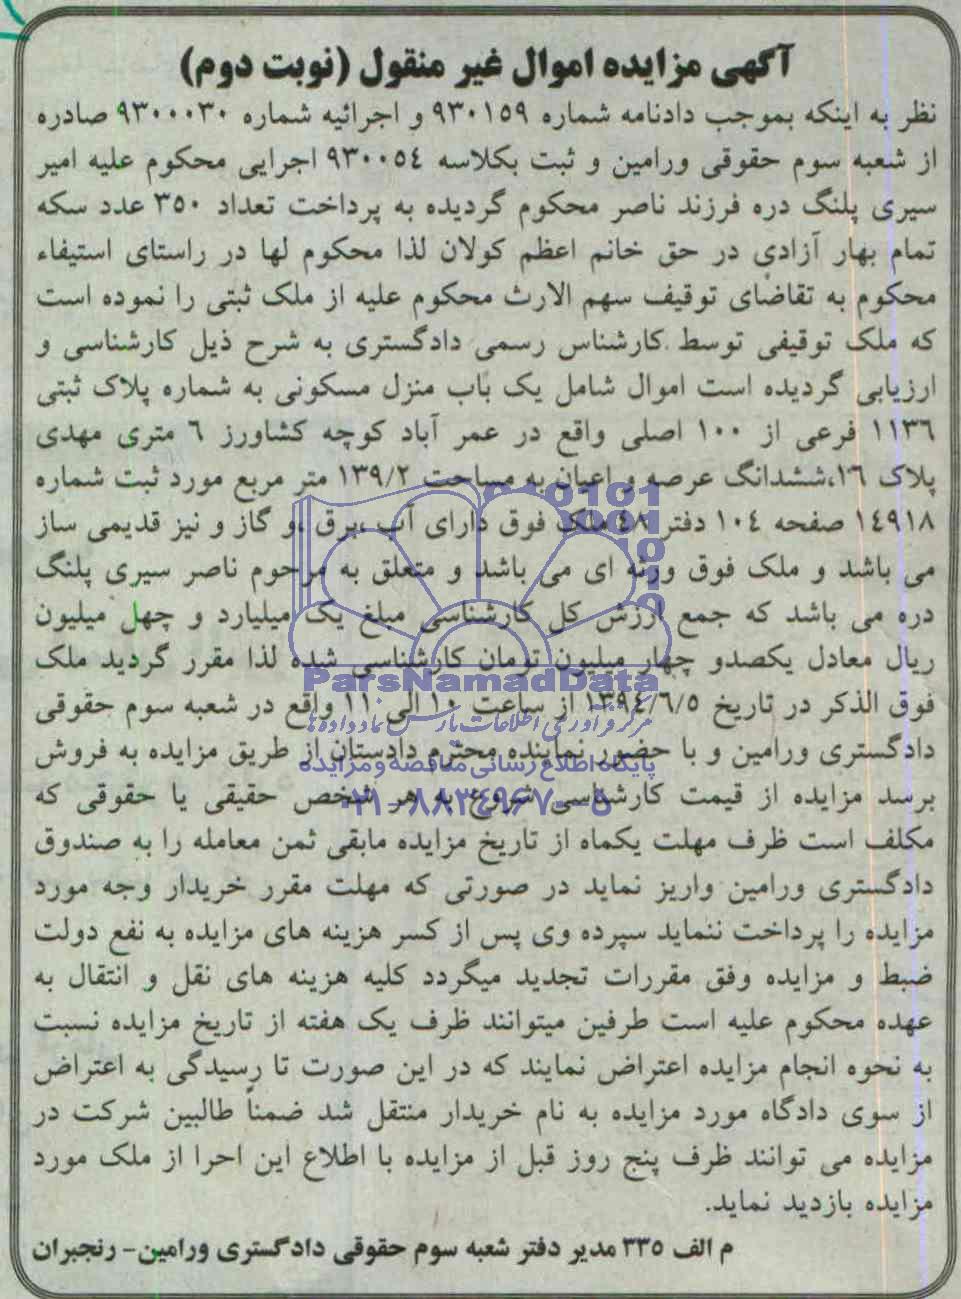 آگهی مزایده اموال غیر منقول (نوبت دوم)
نظر به اینکه بموجب دادنامه شماره ۹۳۰۱۵۹ و اجرائیه شماره ۹۳۰۰۰۳۰ صادره
از شعبه سوم حقوقی ورامین و ثبت بکلاسه ۹۳۰۰۵٤ اجرایی محکوم علیه امیر
سیری پلنگ دره فرزند ناصر محکوم گردیده به پرداخت تعداد ۳۵۰ عدد سکه
تمام بهار آزادی در حق خانم اعظم کولان لذا محکوم لها در راستای استیفاء
محکوم به تقاضای توقیف سهم الارث محکوم علیه از ملک ثبتی را نموده است
که ملک توقیفی توسط کارشناس رسمی دادگستری به شرح ذیل کارشناسی و
ارزیابی گردیده است اموال شامل یک باب منزل مسکونی به شماره پلاک ثبتی
۱۱۳٦ فرعی از ۱۰۰ اصلی واقع در عمر آباد کوچه کشاورز ٦ متری مهدی
پلاک ۱٦،ششدانگ عرصه و اعیان به مساحت ۱۳۹/۲ متر مربع مورد ثبت شماره
۱٤۹۱۸ صفحه ۱۰٤ دفتر ٤۸ ملک فوق دارای آب ،برق ،و گاز و نیز قدیمی ساز
می باشد و ملک فوق ورثه ای می باشد و متعلق به مرحوم ناصر سیری پلنگ
دره می باشد که جمع ارزش کل کارشناسی مبلغ یک میلیارد و چهل میلیون
ریال معادل یکصدو چهار میلیون تومان کارشناسی شده لذا مقرر گردید ملک
ParsNamadData
فوق الذکر در تاریخ ۱۳۹٤/٦/۵ از ساعت ۱۰ الی ۱۱ واقع در شعبه سوم حقوقی
مرکز فرآوری اطلاعات پارس نماد داده ها
دادگستری ورامین و با حضور نماینده محترم دادستان از طریق مزایده به فروش
پایگاه اطلاع رسانی مناقصه و مزایده
برسد مزایده از قیمت کارشناسی شروع به هر شخص حقیقی یا حقوقی که
۰۲۱-۸۸۳٤۹٦۷۰-۵
مکلف است ظرف مهلت یکماه از تاریخ مزایده مابقی ثمن معامله را به صندوق
دادگستری ورامین واریز نماید در صورتی که مهلت مقرر خریدار وجه مورد
مزایده را پرداخت ننماید سپرده وی پس از کسر هزینه های مزایده به نفع دولت
ضبط و مزایده وفق مقررات تجدید میگردد کلیه هزینه های نقل و انتقال به
عهده محکوم علیه است طرفین میتوانند ظرف یک هفته از تاریخ مزایده نسبت
به نحوه انجام مزایده اعتراض نمایند که در این صورت تا رسیدگی به اعتراض
از سوی دادگاه مورد مزایده به نام خریدار منتقل شد ضمناً طالبین شرکت در
مزایده می توانند ظرف پنج روز قبل از مزایده با اطلاع این احرا از ملک مورد
مزایده بازدید نماید.
م الف ۳۳۵ مدیر دفتر شعبه سوم حقوقی دادگستری ورامین- رنجبران